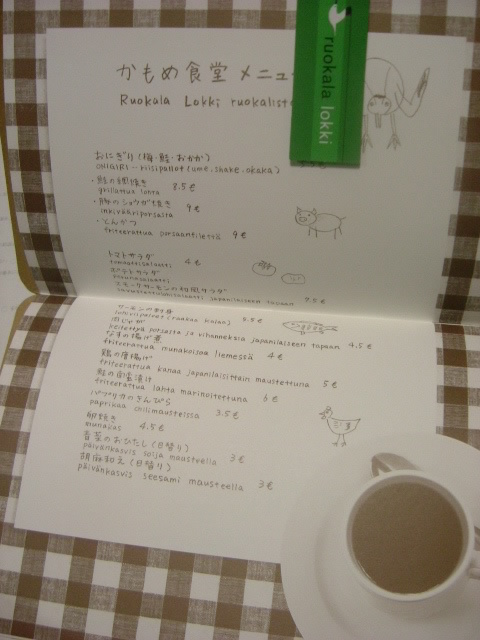 かもめ食堂 メニュ
Ruokala Lokki ruokalist
ruokala lokki
おにぎり (梅・鮭・おかか)
ONIGIRI -- riisipallot (ume. shake. okaka)
・鮭の網焼き 8.5 €
grillattua lohta
・豚のショウガ焼き 9 €
inkivääriporsaita
・とんかつ
friteerattua porsaanfilettä 9 €
トマトサラダ 4 €
tomaattisalaatti
ポテトサラダ
perunasalaatti
スモークサーモンの和風サラダ
japanilaiseen tapaan
サーモンの刺身
肉じゃが
keitettyä porsasta ja vihanneksia japanilaiseen tapaan 4.5 €
なすの揚げ煮
friteerattua munakoisoa liemessä 4 €
鶏の唐揚げ
friteerattua kanaa japanilaisittain maustettuna 5 €
鮭の南蛮漬け
friteerattua lohta marinoitettuna 6 €
パプリカのきんぴら
paprikaa chilimausteissa 3.5 €
卵焼き
munakas 4.5 €
青菜のおひたし (日替り)
päivänkasvis soija mausteella 3 €
胡麻和え (日替り)
päivänkasvis seesami mausteella 3 €